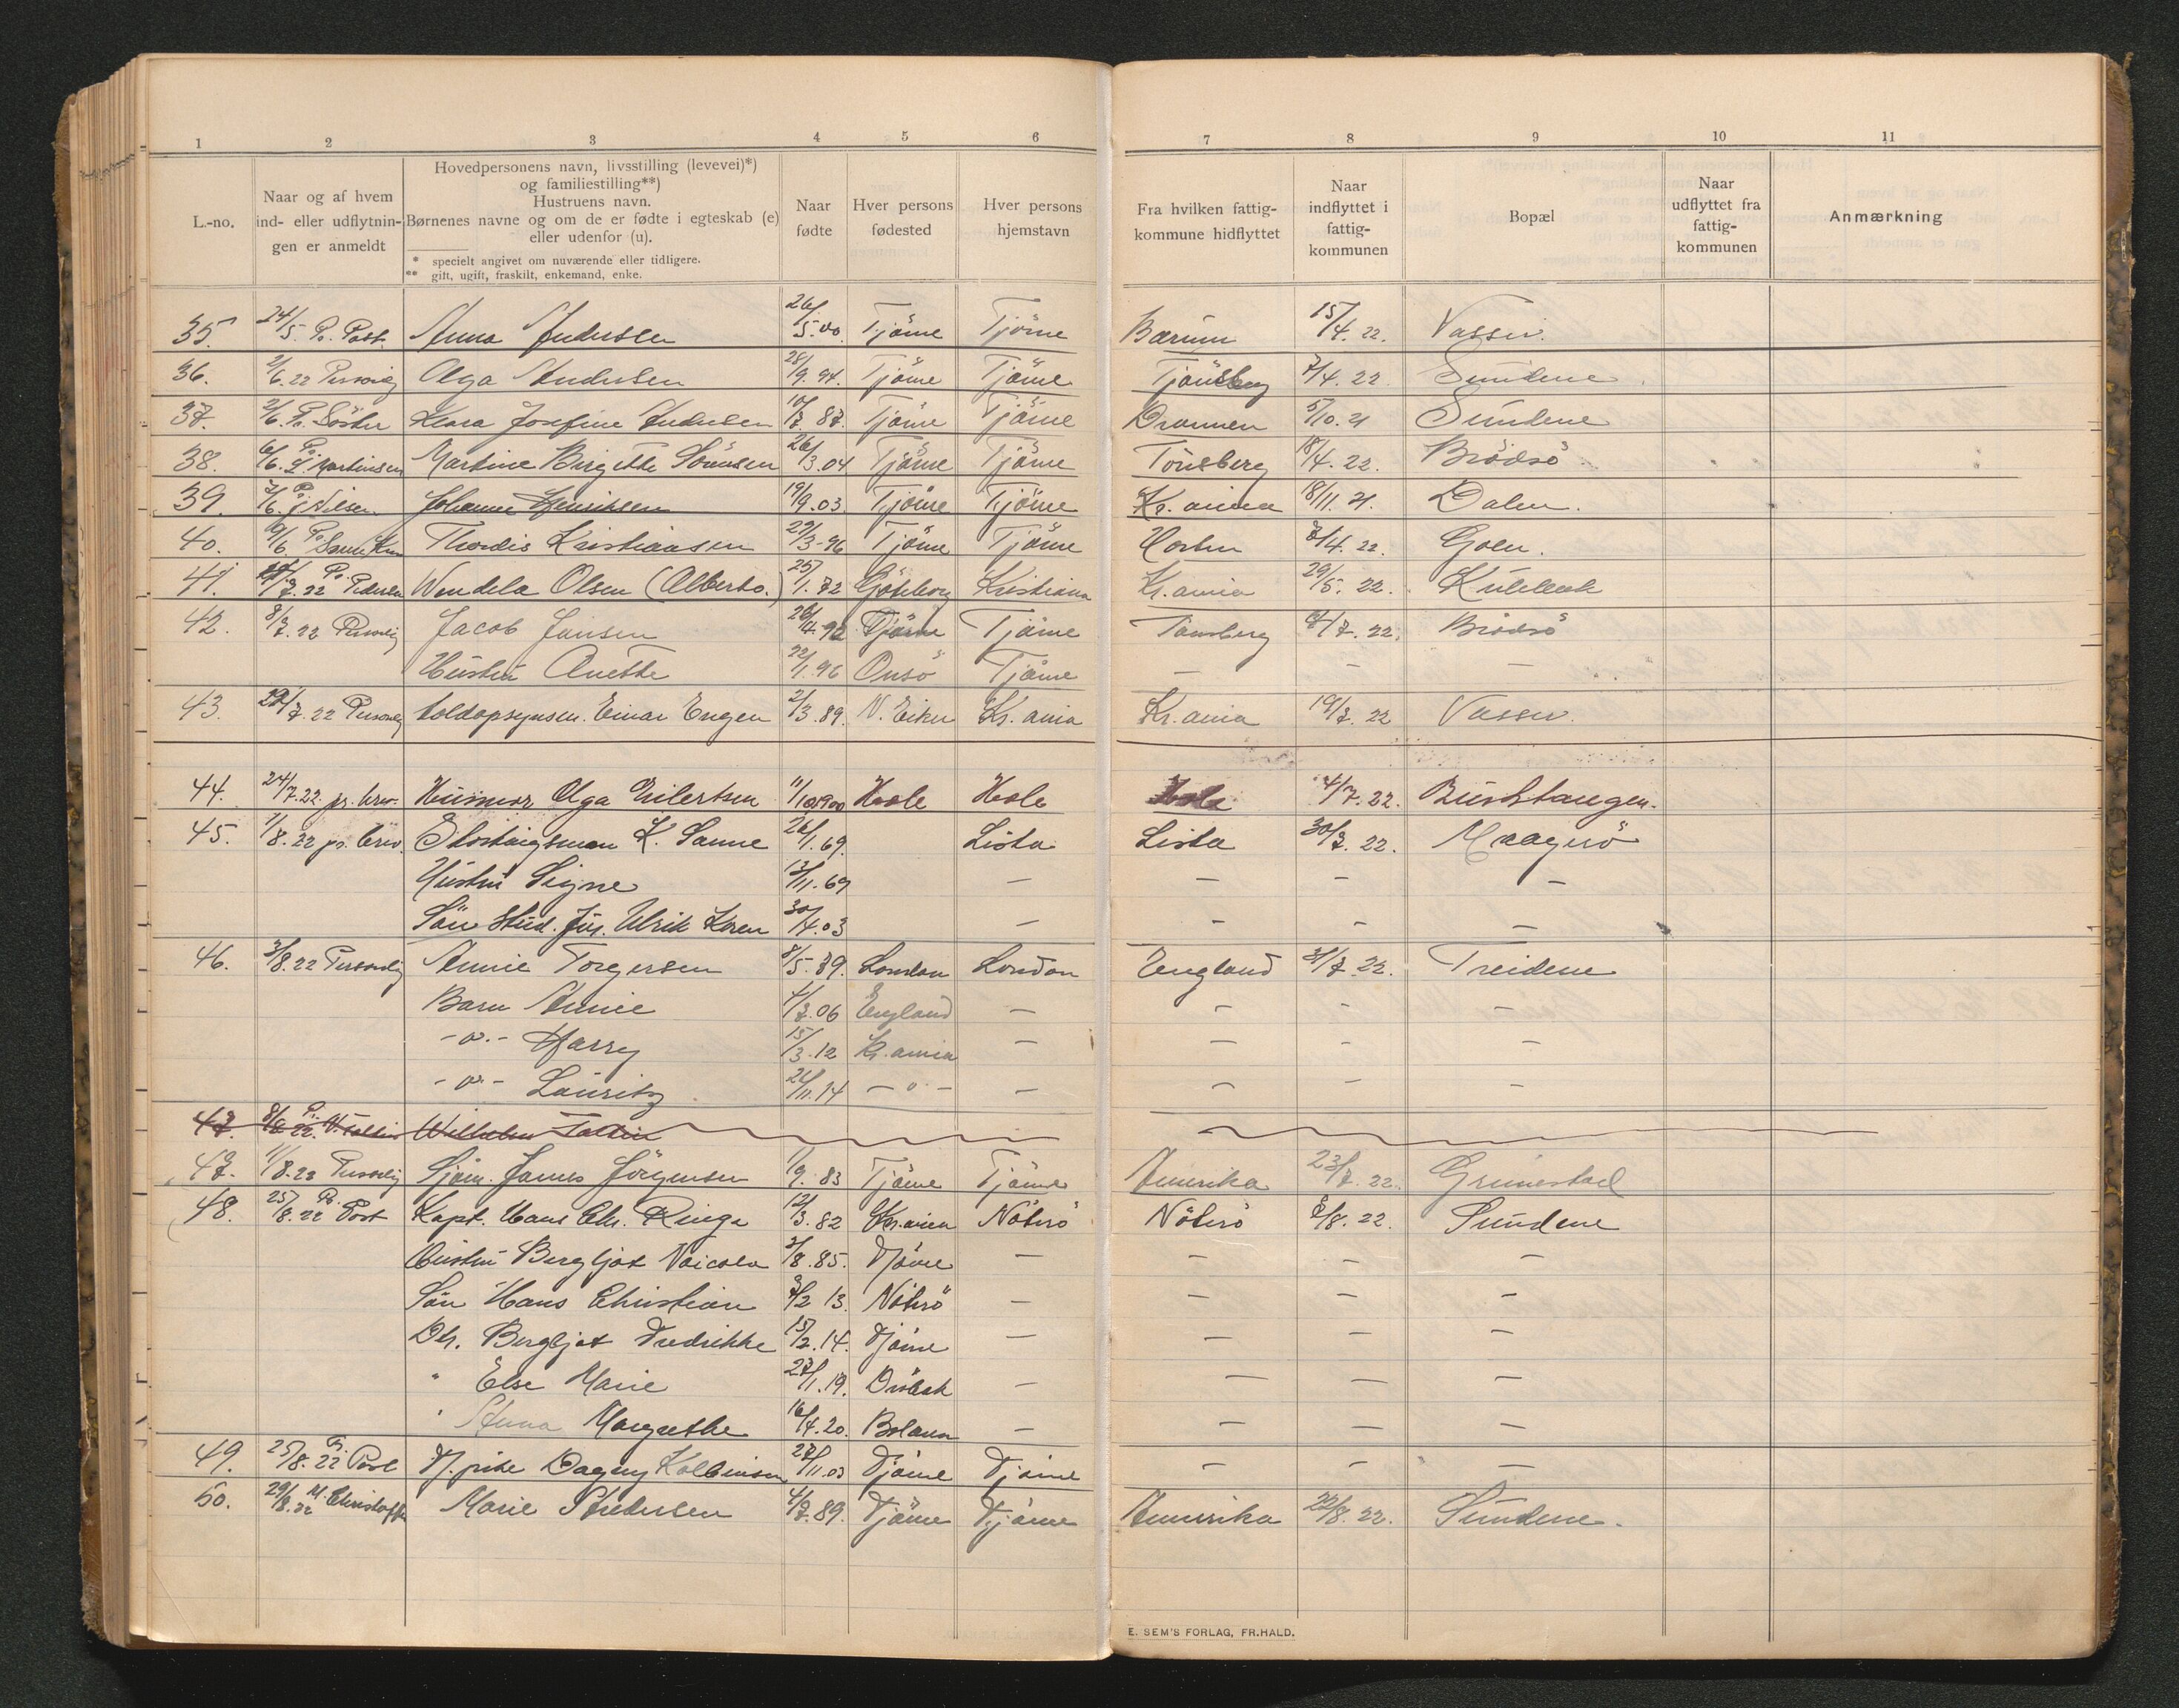 1 2 3 4 5 6 7 8 9 10 11
L.-no.
Naar og af hvem
ind- eller udflytnin-
gen er anmeldt
Hovedpersonens navn, livsstilling (levevei)*)
og familiestilling**)
Hustruens navn.
Børnenes navne og om de er fødte i egteskab (e)
eller udenfor (u).
* specielt angivet om nuværende eller tidligere.
** gift, ugift, fraskilt, enkemand, enke.
Naar
fødte
Hver persons
fødested
Hver persons
hjemstavn
Fra hvilken fattig-
kommune hidflyttet
Naar
indflyttet i
fattig-
kommunen
Bopæl
Naar
udflyttet fra
fattig-
kommunen
Anmærkning
35. 24/5. Pr. Post. Anna Andersen 26/5.00. Tjöme Tjöme Bærum 15/4.22. Vasser.
36. 2/6.22 Personlig Olga Andersen 28/9.94. Tjöme Tjöme Tjönsberg 7/4.22. Sundene.
37. 2/6. Pr. Söster Klara Josefine Andersen 10/7.87. Tjöme Tjöme Drammen 5/10.21 Sundene
38. 6/6. Pr. Martinsen Martine Birgitte Sörensen 26/3.04 Tjöme Tjöme Tönsberg 18/4.22. Brödsö.
39. 7/6. Pr. J Nilsen. Johanne Henriksen 19/9.03. Tjöme Tjöme Kr.ania 18/11.21. Dalen.
40. 9/6. Pr. Thordis Kristiansen 29/3-96 Tjöme Tjöme Horten 7/4.22. Goen.
41. 7.22 Pr. Pedersen Wendela Olsen (Alberto.) 25/1.72 Göteborg Kristiania Kr.ania 29/5.22. Kulebæk
42. 8/7.22 Personlig Jacob Jansen 26/4.92 Tjöme Tjöme Tönsberg 8/7.22. Brödsö
Hustru Anette 22/1.96 Onsö Tjöme — — —
43. 20/7.22 Personlig toldopsynsm. Einar Engen 2/3.89. N. Eiker Kr.ania Kr.ania 19/7.22 Vasser.
44. 24/7.22. pr. brev. Husmor Olga Eilertsen 11/10 1900 Hole Hole Hole 4/7.22. Burstangen.
45. 1/8.22 pr. brev. Stortingsman K. Sanne 26/1.69. Lista Lista 30/7.22. Maagerö
Hustru Signe 13/11.69 — — — —
Sön Stud. Jur. Ulrik Koren 30/4.03 — — — —
46. 3/8.22 Personlig Annie Torgersen 8/5.89. London London England 31/7.22. Treidene
Barn Annie 4/7.06 England — — — —
-o.- Harry 15/3.12 Kr.ania — — — —
-o- Lauritz 26/11.14 -o- — — — —
47. 8/8.22. Pr. Wilhelm
47. 11/8.22 Personlig Sjöm. James Jörgensen 1/9.83 Tjöme Tjöme Amerika 23/7.22. Grimestad
48. 25/8.22 Pr. Post Kapt. Hans Chr. Ringe 12/3.82 Kr.ania Nöterö Nöterö 8/8.22. Sundene
Hustru Bergljot Naicola 3/8.85. Tjöme — — — —
Sön Hans Christian 3/2 13. Nöterö — — — —
Dtr. Bergljot Fredrikke 15/2.14. Tjöme — — — —
" Else Marie 27/11.19. Dröbak — — — —
" Anna Margrethe 16/4.20. — — — —
49. 25/8.22 Pr. Post Tj.pike Dagny Kolbeinsen 27/11.03 Tjöme Tjöme — — —
50. 29/8.22 M. Christoff Marie Andersen 4/7.89. Tjöme Tjöme Amerika 22/8.22. Sundene.
E. SEM'S FORLAG, FR.HALD.